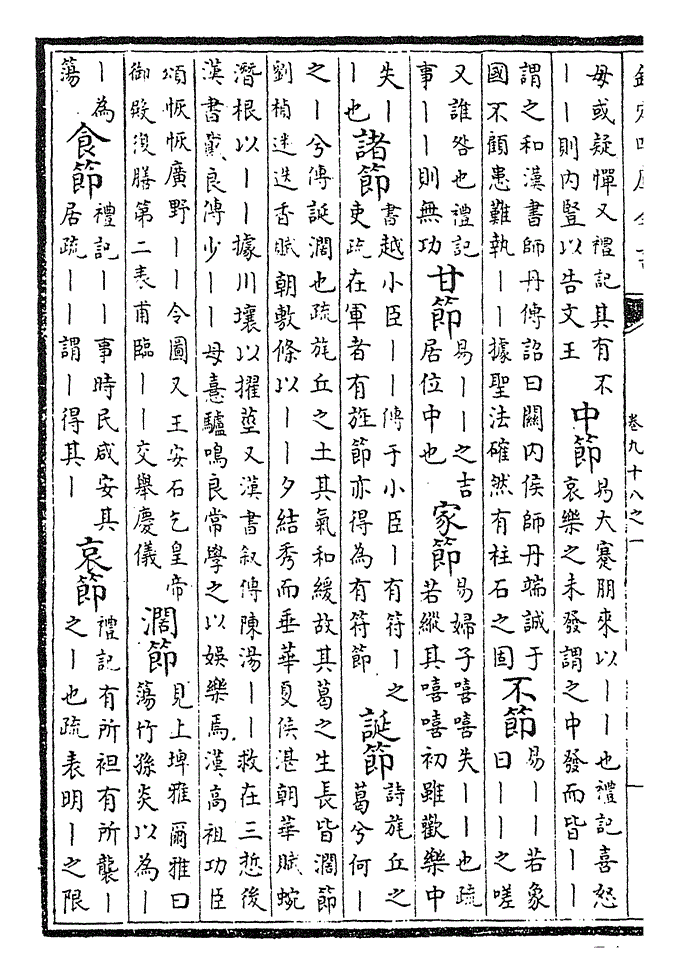 卷九十八之一
一
毋或疑憚又禮記其有不
丨丨則內豎以告文王
中節
易大蹇朋來以丨丨也禮記喜怒
哀樂之未發謂之中發而皆丨丨
謂之和漢書師丹傳詔曰關內侯師丹端誠于
國不顧患難執丨丨據聖法確然有柱石之固
不節
易丨丨若象
曰丨丨之嗟
又誰咎也禮記
事丨丨則無功
甘節
易丨丨之吉
居位中也
家節
易婦子嘻嘻失丨丨也疏
若縱其嘻嘻初雖歡樂中
失丨
丨也
諸節
書越小臣丨丨傳于小臣丨有符丨之
吏疏在軍者有旌節亦得為有符節
誕節
詩旄丘之
葛兮何丨
之丨兮傳誕濶也疏旄丘之土其氣和緩故其葛之生長皆濶節
劉楨迷迭香賦朝敷條以丨丨夕結秀而垂華夏侯湛朝華賦蜿
潛根以丨丨據川壤以擢莖又漢書敘傳陳湯丨丨救在三悊後
漢書戴良傳少丨丨母憙驢鳴良常學之以娛樂焉漢高祖功臣
頌恢恢廣野丨丨令圖又王安石乞皇帝
御殿復膳第二表甫臨丨丨交舉慶儀
濶節
見上埤雅爾雅曰
簜竹孫炎以為丨
丨為
簜
食節
禮記丨丨事時民咸安其
居疏丨丨謂丨得其丨
哀節
禮記有所袒有所襲丨
之丨也疏表明丨之限